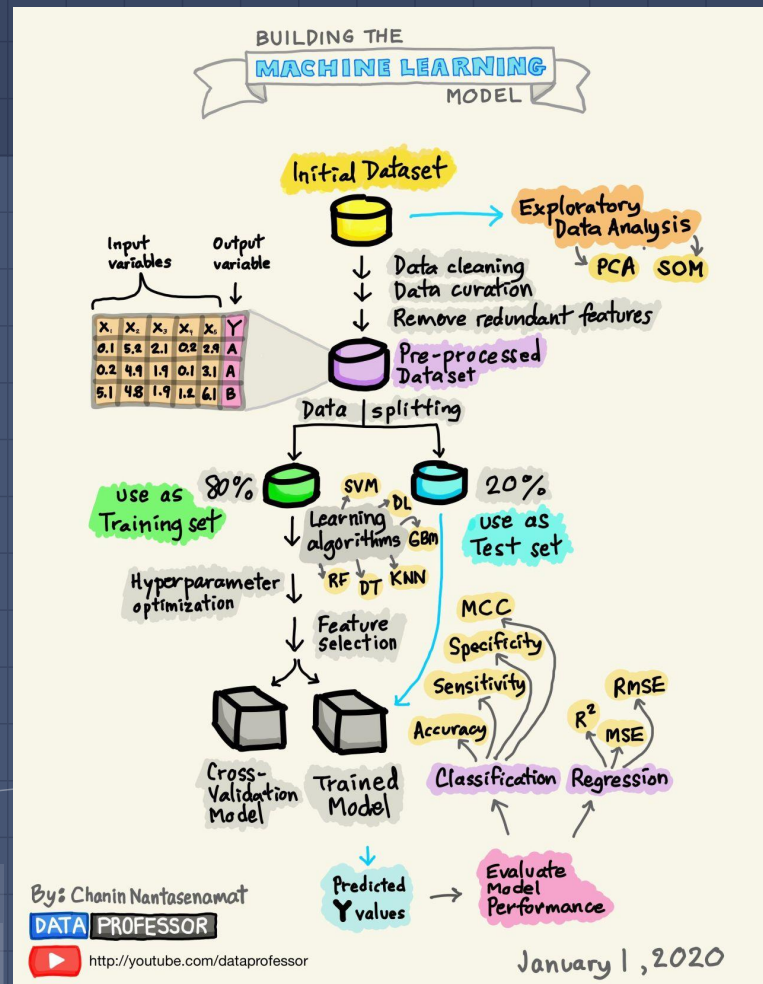 BUILDING THE
MACHINE LEARNING
MODEL
Initial Dataset
Exploratory
Data Analysis
PCA SOM
Input
variables
Output
variable
Data cleaning
Data curation
Remove redundant features
X₁ X₂ X₃ X₄ X₅ Y
0.1 5.2 2.1 0.2 2.9 A
0.2 4.9 1.9 0.1 3.1 A
5.1 4.8 1.9 1.2 6.1 B
Pre-processed
Dataset
Data splitting
80%
use as
Training set
20%
use as
Test set
Learning
algorithms
SVM
DL
GBM
KNN
DT
RF
Hyperparameter
optimization
Feature
selection
Cross-
Validation
Model
Trained
Model
MCC
Specificity
Sensitivity
Accuracy
RMSE
R²
MSE
Classification
Regression
Predicted
Y values
Evaluate
Model
Performance
By: Chanin Nantasenamat
DATA PROFESSOR
http://youtube.com/dataprofessor
January 1, 2020